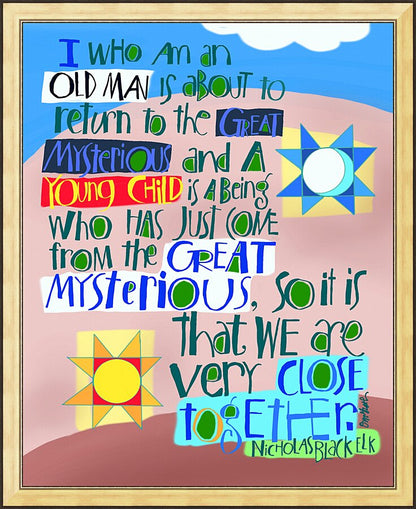 I WHO AM an
OLD MAN is ABOUT to
return to the GREAT
MYSTERIOUS and A
YOUNG CHILD is A Being
WHO HAS JUST COME
from the GREAT
MYSTERIOUS, so it is
THAT WE are
very CLOSE
togETHER.
NICHOLAS BLACK ELK